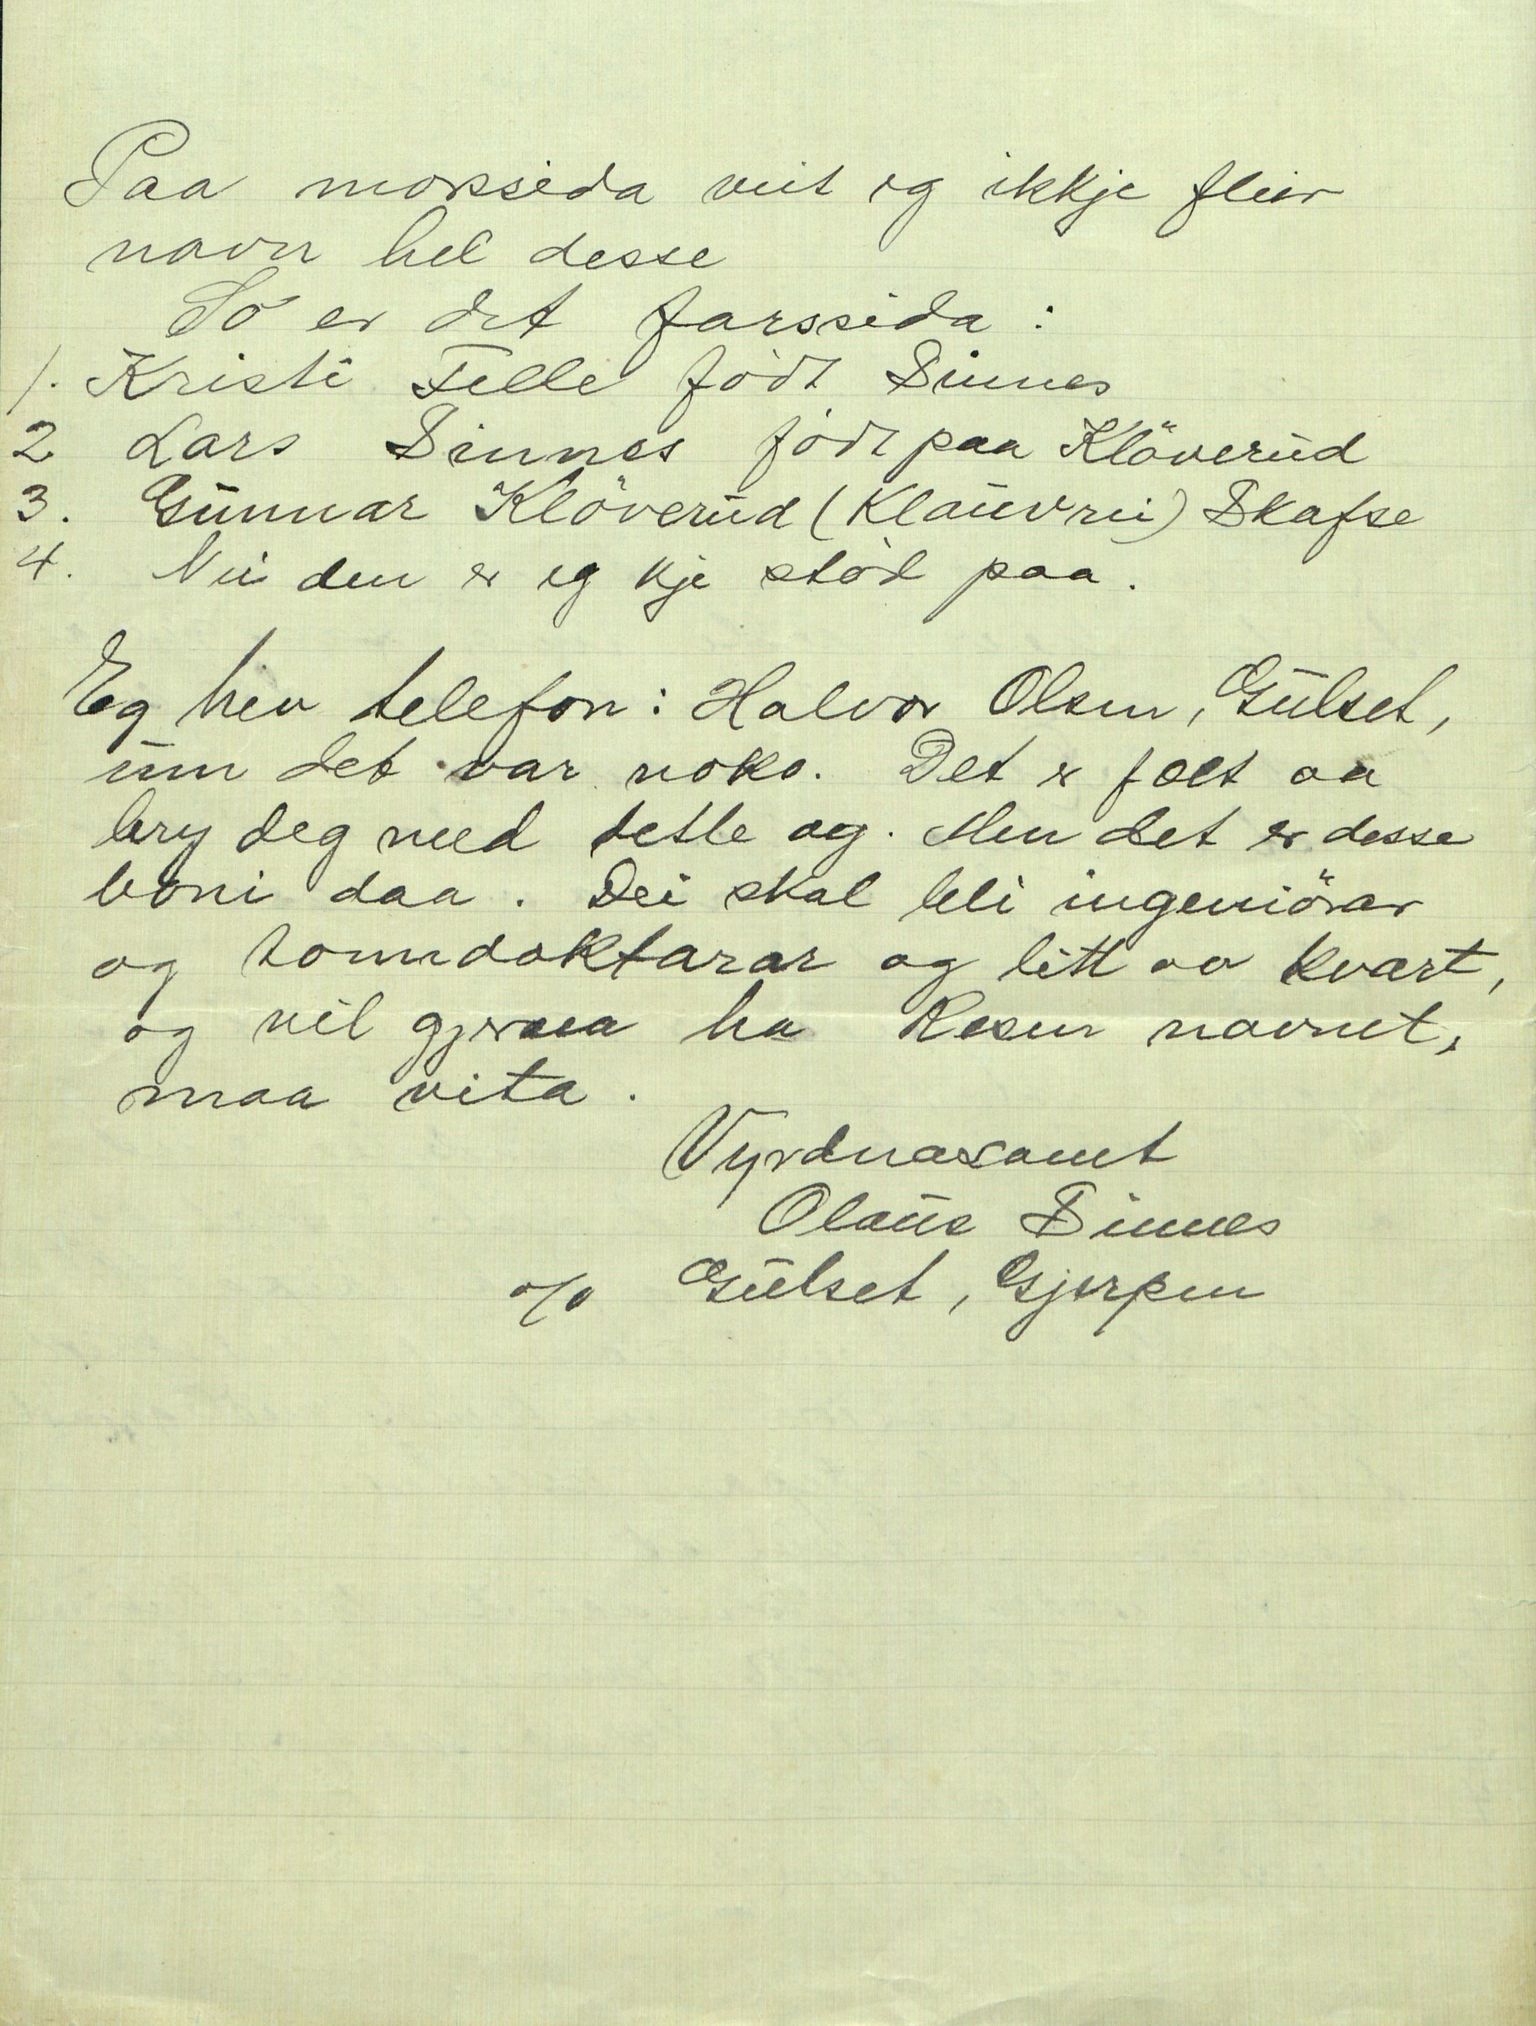 Paa morssida veit eg ikkje fleir
navn hel desse
So er det farssida :
1. Kristi Felle född Sinnes
2 Lars Sinnes född paa Klöverud
3. Gunnar Klöverud (Klauvrui) Skafse
4. Nei den er eg kje stöd paa.
Eg hev telefon: Halvor Olsen, Gulset,
um det var noko. Det er fælt aa
bry deg med dette og. Men det er desse
boni daa. Dei skal bli ingeniörar
og tonndoktarar og litt av kvart,
og vil gjerna ha Resen navnet,
maa vita.
Vyrdnasamt
Olaus Sinnes
Gulset, Gjerpen